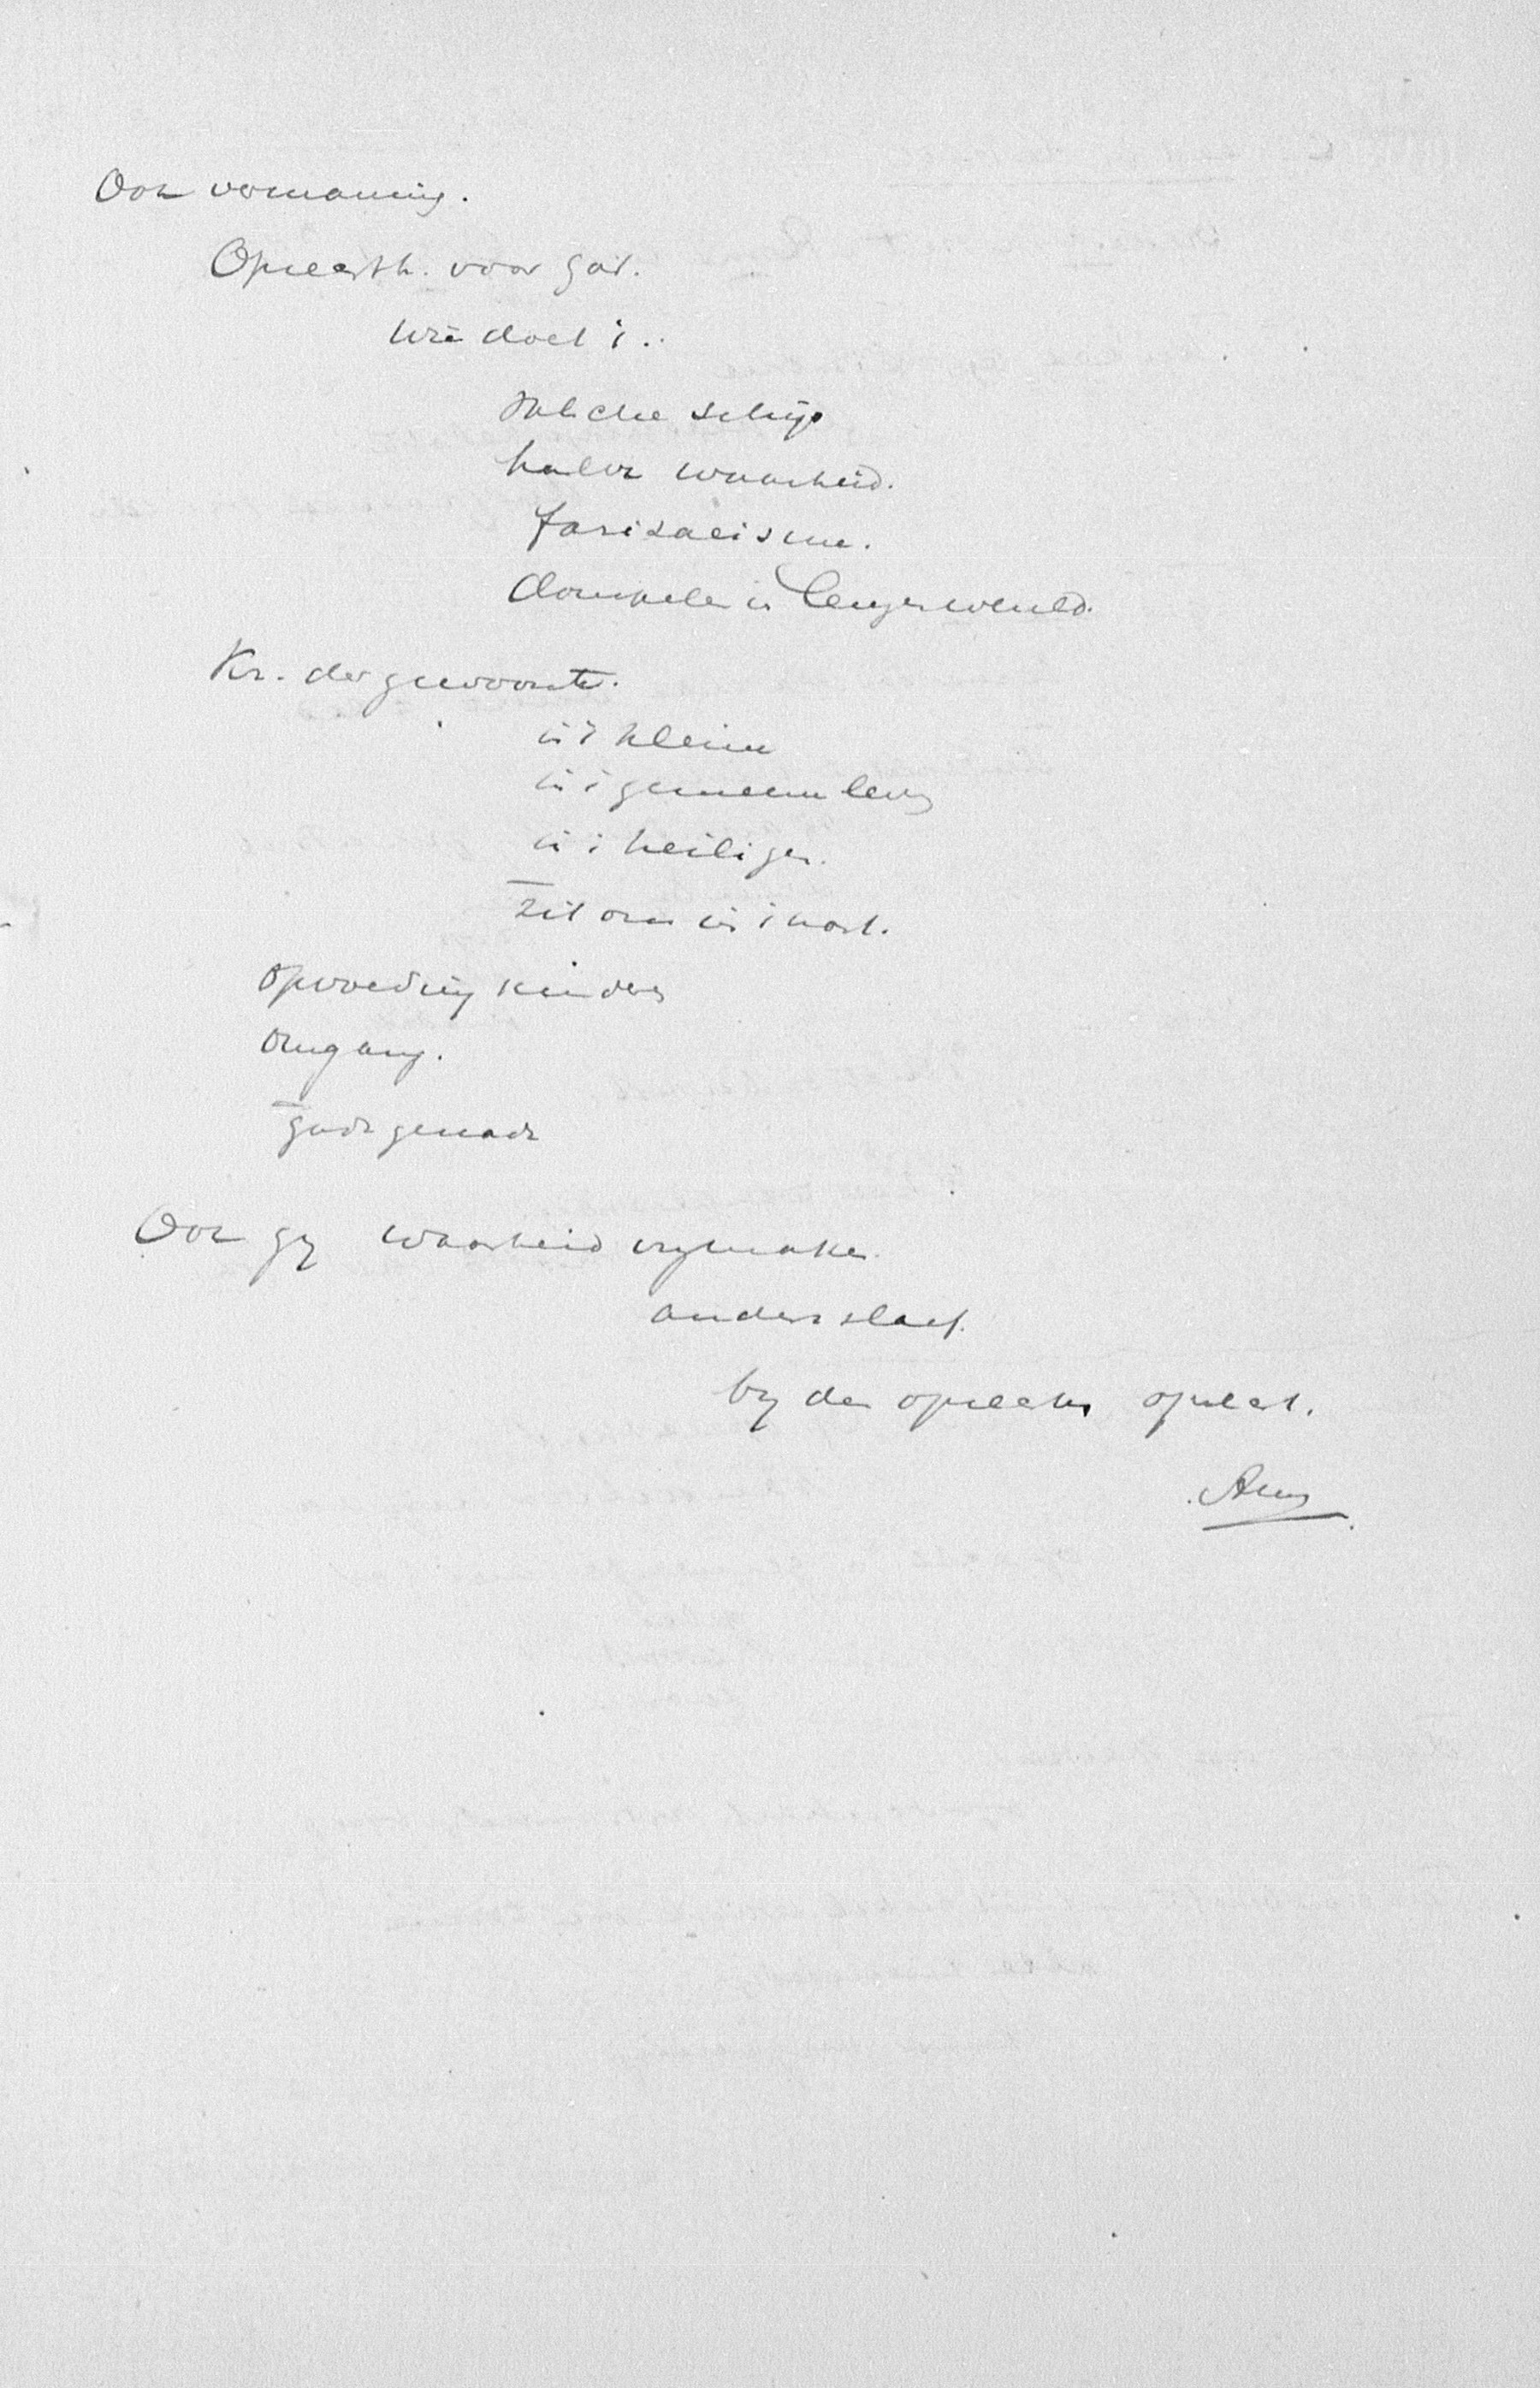 Ook vermaning.
Oprechth. voor God.
Wie doet i..
schijn
halve waarheid.
farizaeisme.
donkeler in leugenwereld.
Kr. der gewoonte.
in 't kleine
in i gemeene leven
in i heilige.
zit ons in i hart.
opvoeding kinderen
omgang.
Gods genade
Ook gij waarheid vrijmaken.
anders slaaf.
bij den oprechten oprecht.
Amen